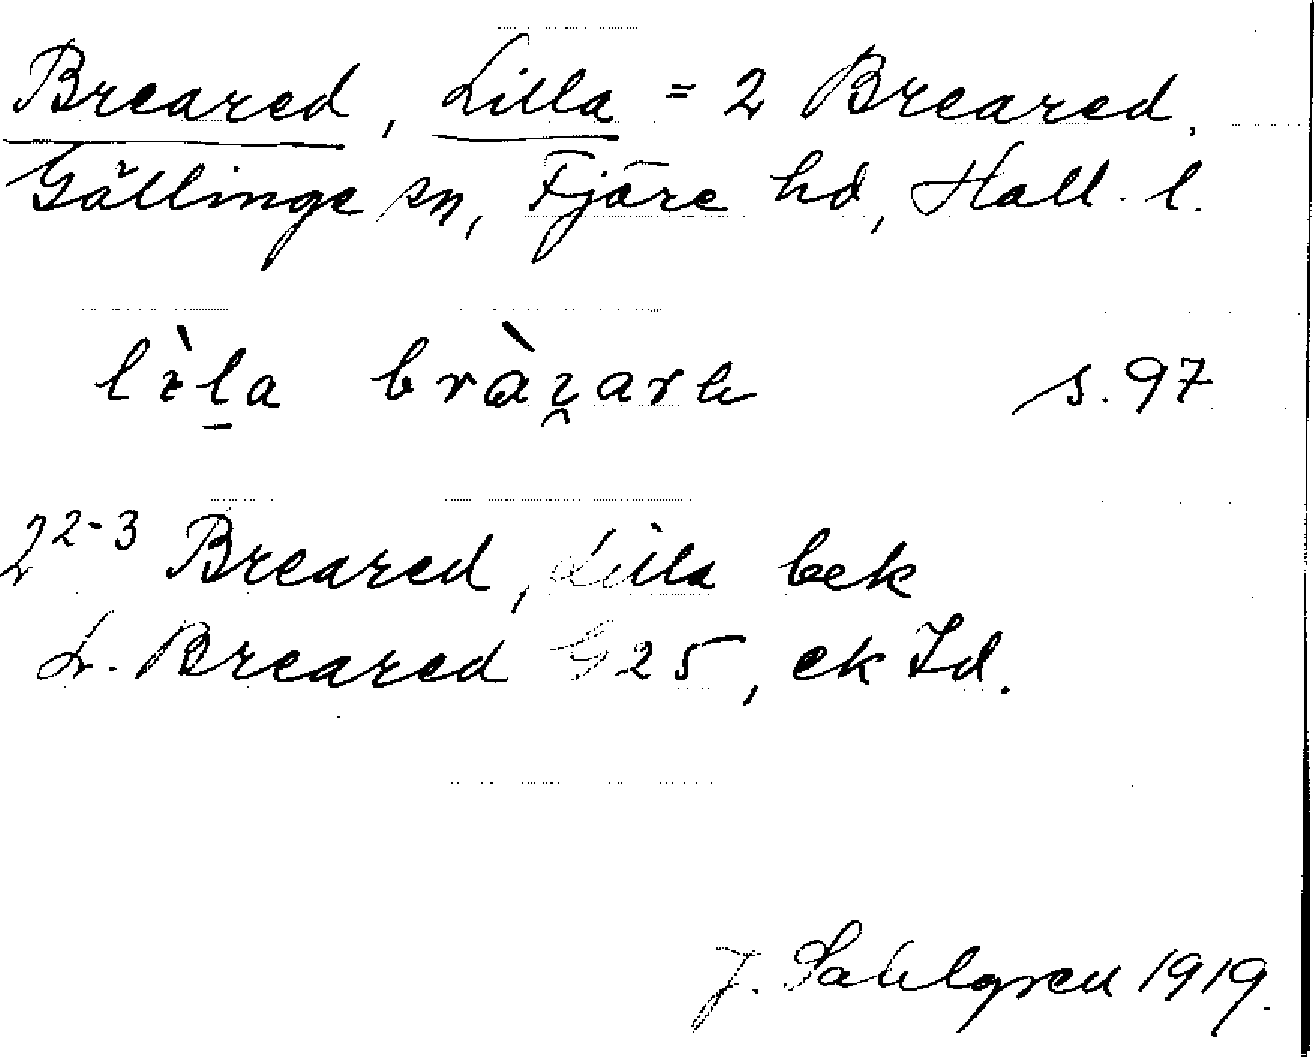 Breared, Lilla = 2 Breared.
Gällinge sn, Fjäre hd, Hall. l.
s. 97
2²⁻³ Breared, Lilla bek
L. Breared G 25, ek Id.
J. Sahlgren 1919.